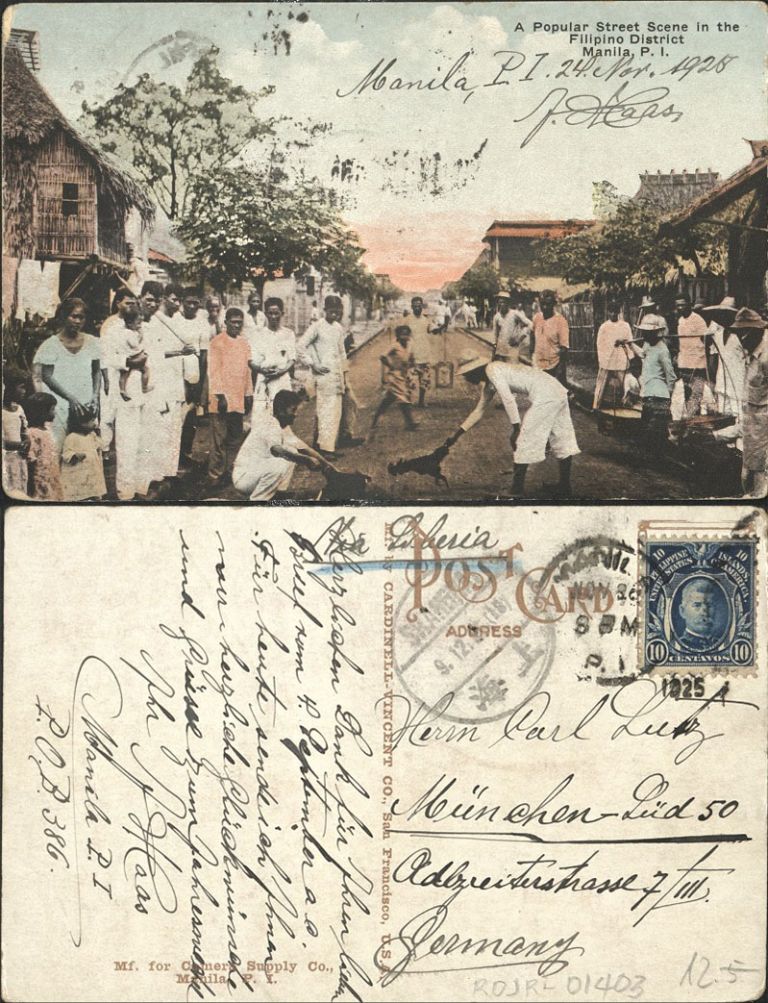 A Popular Street Scene in the
Filipino District
Manila, P. I.
Manila, P. I. 24. Nov. 1925
J. Haas
Via Siberia
POST CARD
ADDRESS
Mf. by CARDINELL-VINCENT CO., San Francisco, U.S.A.
SHANGHAI
9.12.
上
海
NOV 26
8 PM
P. I.
1925
PHILIPPINE ISLANDS
UNITED STATES OF AMERICA
10 10
10 CENTAVOS 10
Herrn Carl Lutz
München-Süd 50
Adlzreiterstrasse 7/III.
Germany
Herzlichen Dank für Ihren lieben
Brief vom 4. September a. c.
Für heute sende ich Ihnen
nur herzliche Glückwünsche
und Grüsse zum Jahreswechsel
Ihr J. Haas
Manila P. I
P.O.B. 386.
Mf. for Camera Supply Co.,
Manila, P. I.
ROJR-01403
12.5